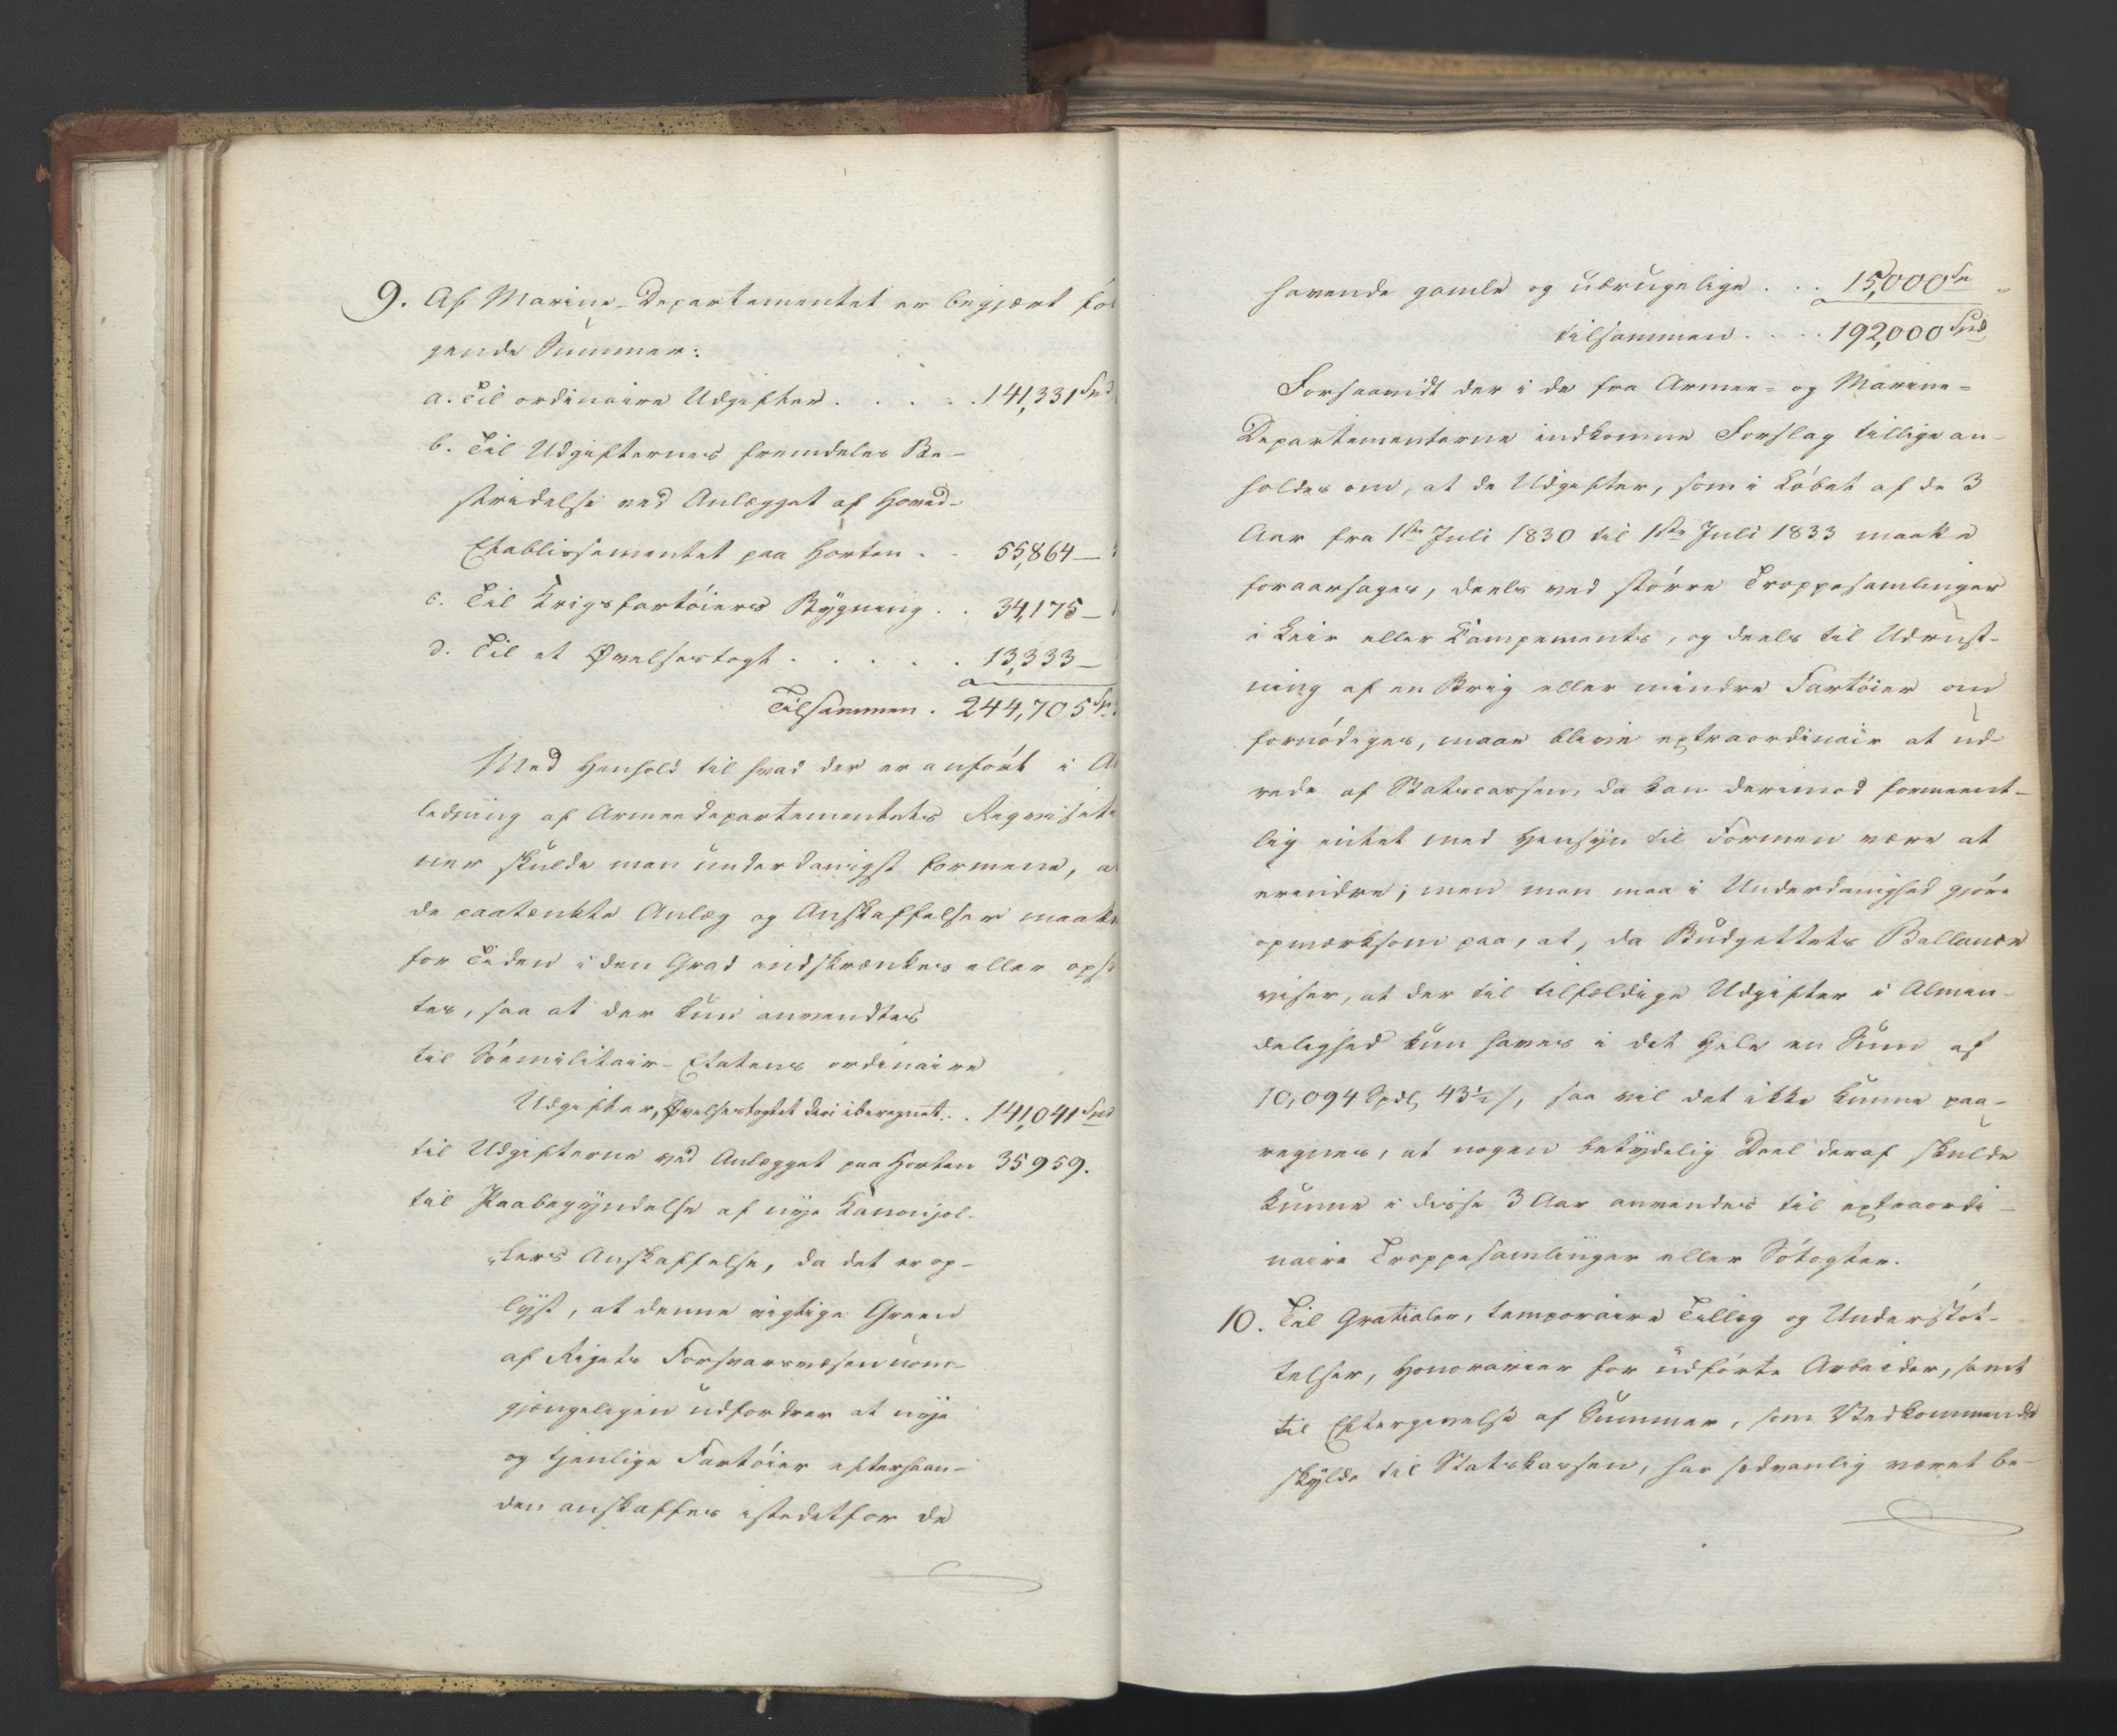 9. Af Marine-Departementet er begjært føl
gende Summer:
a. Til ordinaire Udgifter . . . . . 141,331 Spd
b. Til Udgifternes fremdeles Be-
stridelse ved Anlægget af Hoved-
Etablissementet paa Horten . . 55,864 —
c. Til Krigsfartöiers Bygning . . 34,175 —
d. Til et Øvelsestogt . . . . . 13,333 —
Tilsammen . 244,705 Sp
Med Henhold til hvad der er anført i A
ledning af Armeedepartementets Reqvisiti
oner skulde man underdanigst formene, a
de paatænkte Anlæg og Anskaffelser maatte
for Tiden i den Grad indskrænkes eller opsæ
tes, saa at der kun anvendtes
til Sömilitair-Etatens ordinaire
Udgifter, Øvelsestogtet deri iberegnet . . 141,041 Spd
til Udgifterne ved Anlægget paa Horten 35959.
til Paabegyndelse af nye Kanonjol-
lers Anskaffelse, da det er op-
lyst, at denne vigtige Green
af Rigets Forsvarsvæsen uom-
gjængeligen udfordrer at nye
og tjenlige Fartöier efterhaan-
den anskaffes istedetfor de
havende gamle og ubrugelige . . . 15,000 Sp
tilsammen . . . . 192,000 Spd
Forsaavidt der i de fra Armee- og Marine-
Departementerne indkomne Forslag tillige an-
holdes om, at de Udgifter, som i Löbet af de 3
Aar fra 1ste Juli 1830 til 1ste Juli 1833 maatte
foraarsages, deels ved større Troppesamlinger
i Leir eller Campements, og deels til Udrust-
ning af en Brig eller mindre Fartöier om
fornödiges, maae blive extraordinair at ud-
rede af Statscassen, da kan derimod formeent-
lig intet med Hensyn til Formen være at
erindre; men man maa i Underdanighed gjøre
opmærksom paa, at, da Budgettets Ballance
viser, at der til tilfældige Udgifter i Almin-
delighed kun haves i det Hele en Sum af
10,094 Spdl, 43½ /, saa vil det ikke kunne paa-
regnes, at nogen betydelig Deel deraf skulde
kunne i disse 3 Aar anvendes til extraordi-
naire Troppesamlinger eller Sötogter.
10. Til Gratialer, temporaire Tillæg og Understöt-
telser, Honorarier for udførte Arbeider, samt
til Eftergivelse af Summer, som Vedkommende
skylde til Statskassen, har sædvanlig været be-